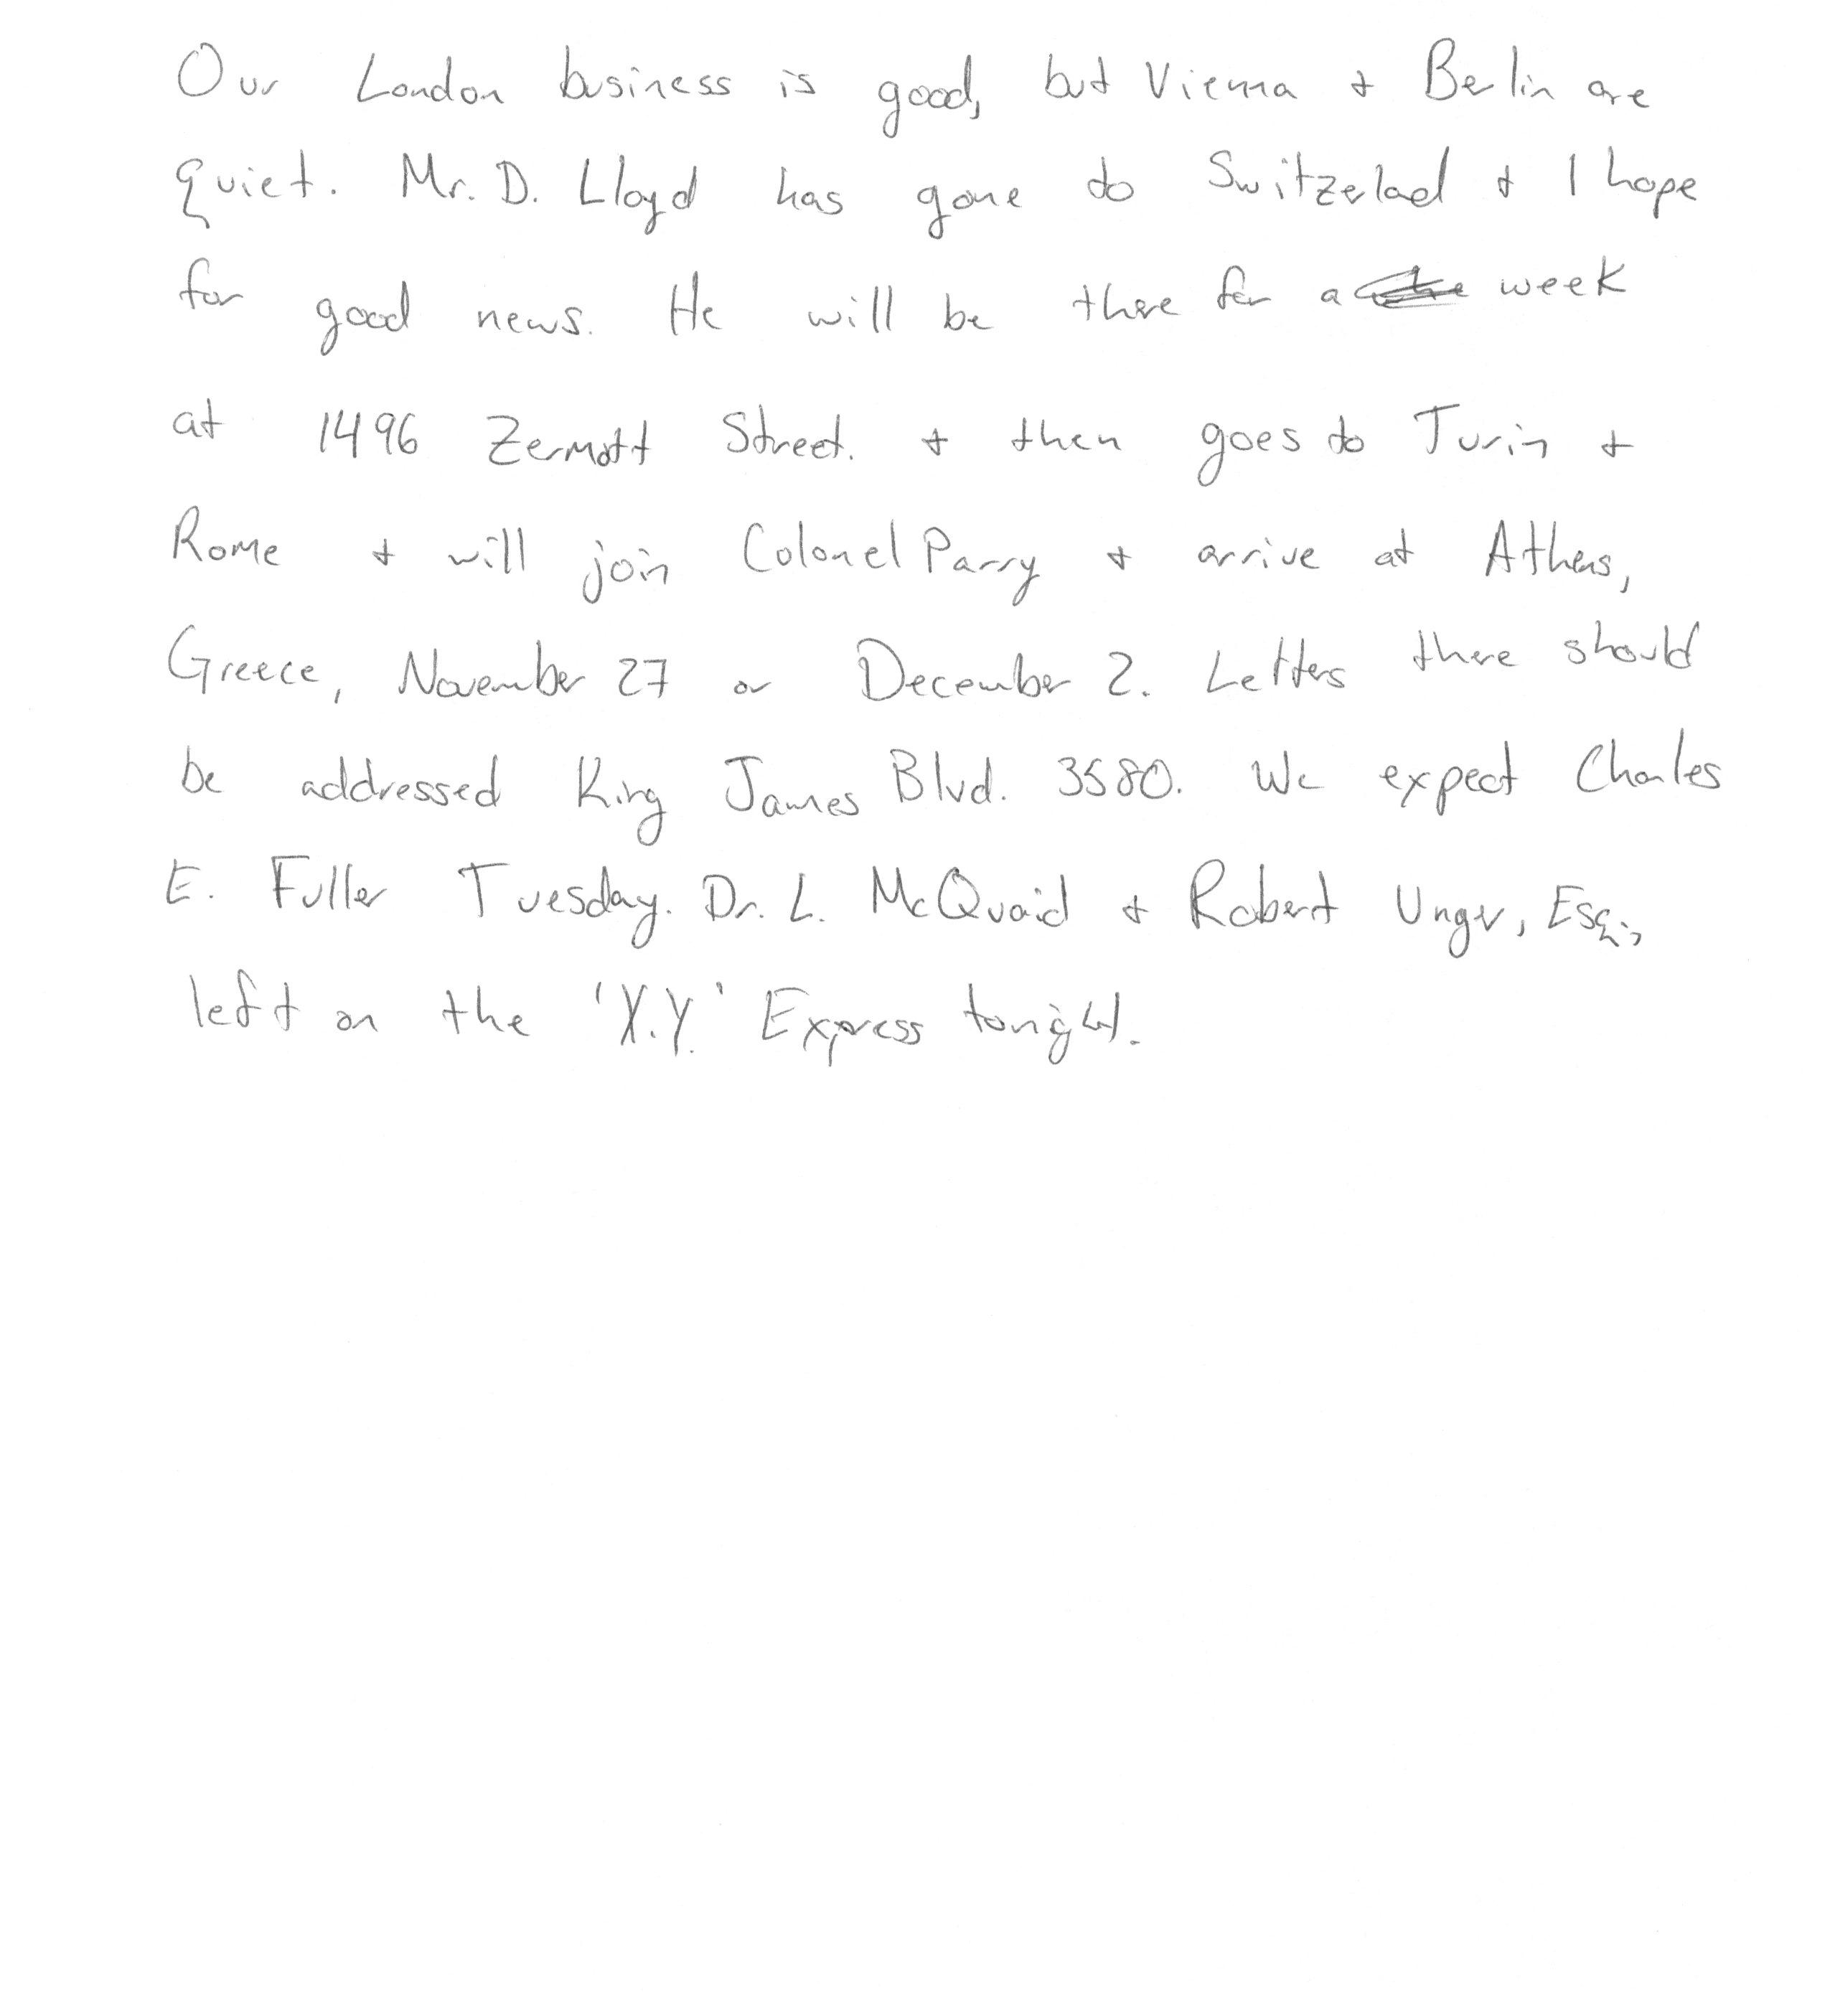 Our London business is good, but Vienna + Berlin are
quiet. Mr. D. Lloyd has gone to Switzerlad + I hope
for good news. He will be there for a week
at 1496 Zermott Street. + then goes to Turin +
Rome + will join Colonel Parry + arrive at Athens,
Greece, November 27 or December 2. Letters there should
be addressed King James Blvd. 3580. We expect Charles
E. Fuller Tuesday. Dr. L. McQuaid + Robert Unger, Esq.,
left on the 'X.Y.' Express tonight.